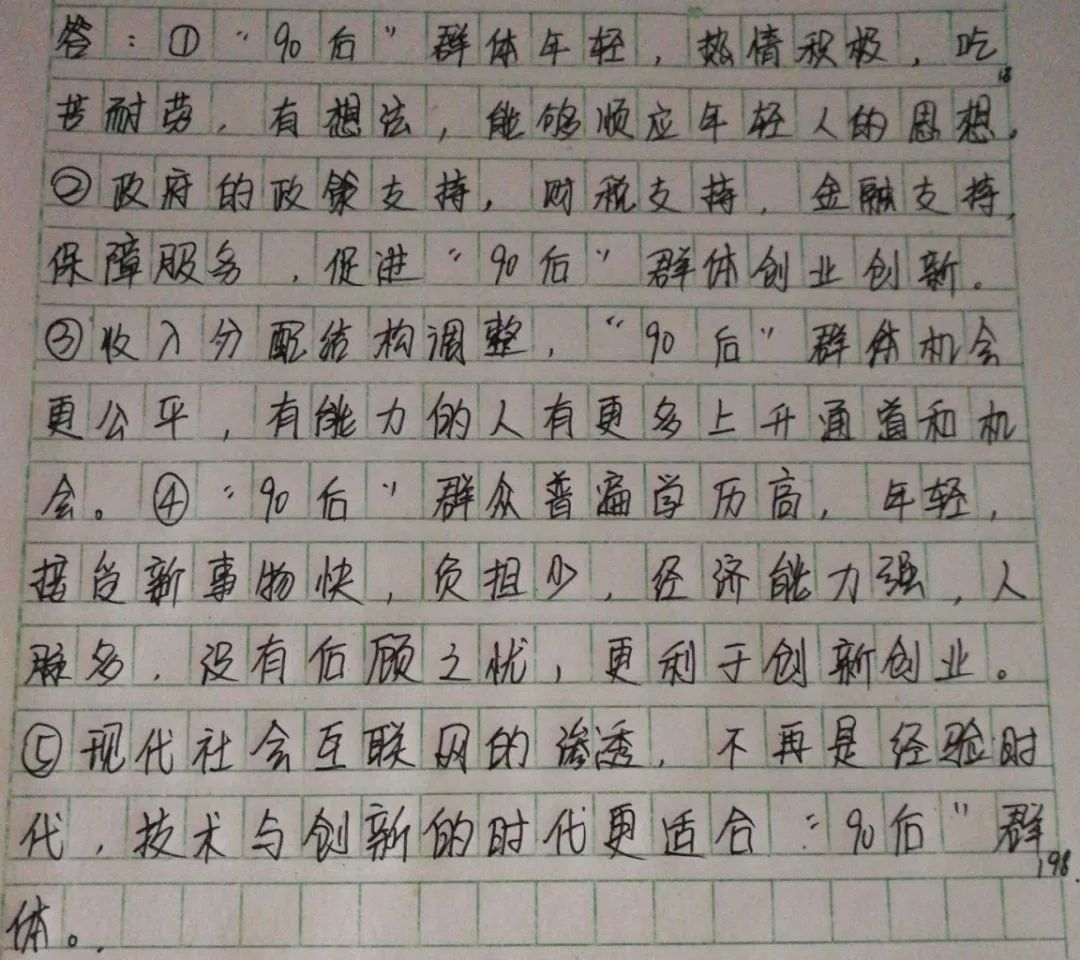 答：①“90后”群体年轻，热情积极，吃
18
苦耐劳，有想法，能够顺应年轻人的思想。
②政府的政策支持，财税支持，金融支持，
保障服务，促进“90后”群体创业创新。
③收入分配结构调整，“90后”群体机会
更公平，有能力的人有更多上升通道和机
会。④“90后”群众普遍学历高，年轻，
接受新事物快，负担少，经济能力强，人
脉多，没有后顾之忧，更利于创新创业。
⑤现代社会互联网的渗透，不再是经验时
代，技术与创新的时代更适合“90后”群
198.
体。